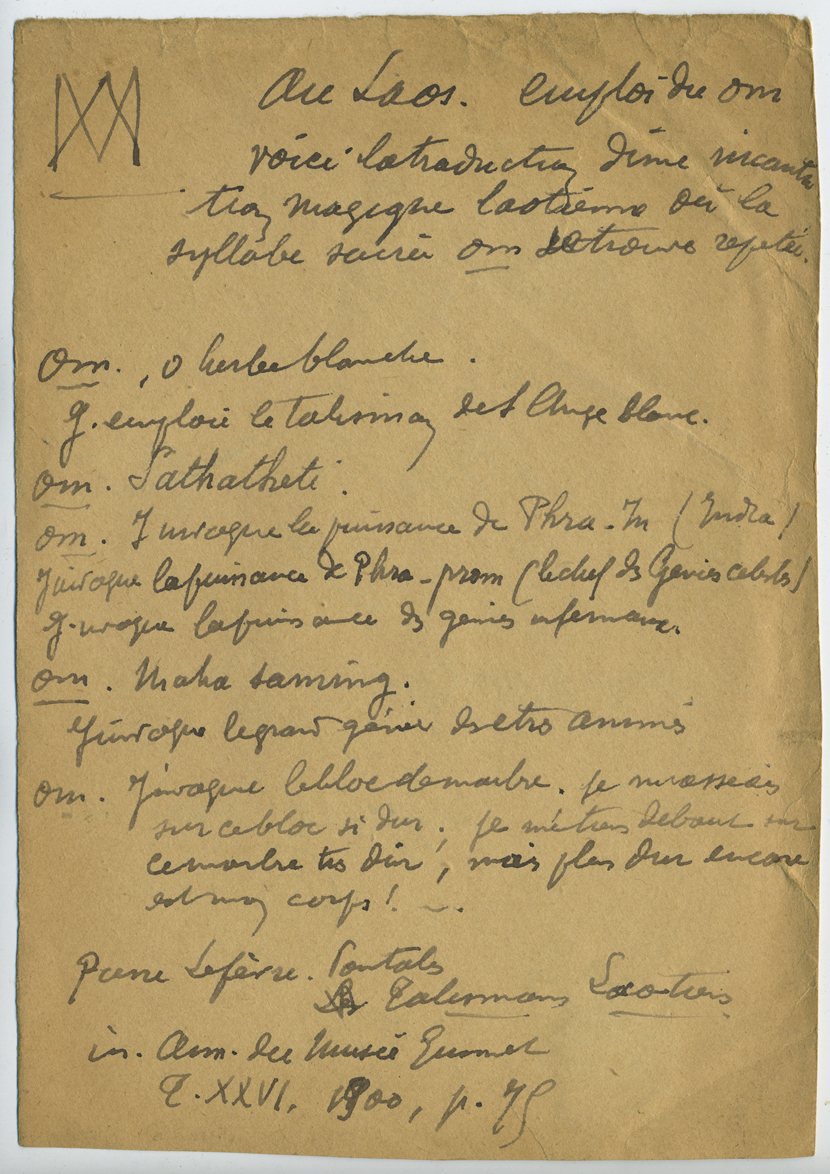 Au Laos. emploi du om
voici la traduction d'une incanta
tion magique laotienne où la
syllabe sacrée om se trouve repetée.
Om. , o herbe blanche.
J. emploie le talisman de l'Ange blanc.
om. Sathatheti.
om. J invoque la puissance de Phra-In (Indra)
J'invoque la puissance de Phra-prom (le chef des Génies celestes)
J. invoque la puissance des génies infernaux.
om. Maha saming.
J'invoque le grand génie des etres animés
om. J'invoque le bloc de marbre. je m'asseois
sur ce bloc si dur; je me tiens debout sur
ce marbre très dur, mais plus dur encore
est mon corps! ...
Pierre Lefèvre. Pontalis
Talismans Laotiens
in. Ann. du Musée Guimet
T. XXVI, 1900, p. 75